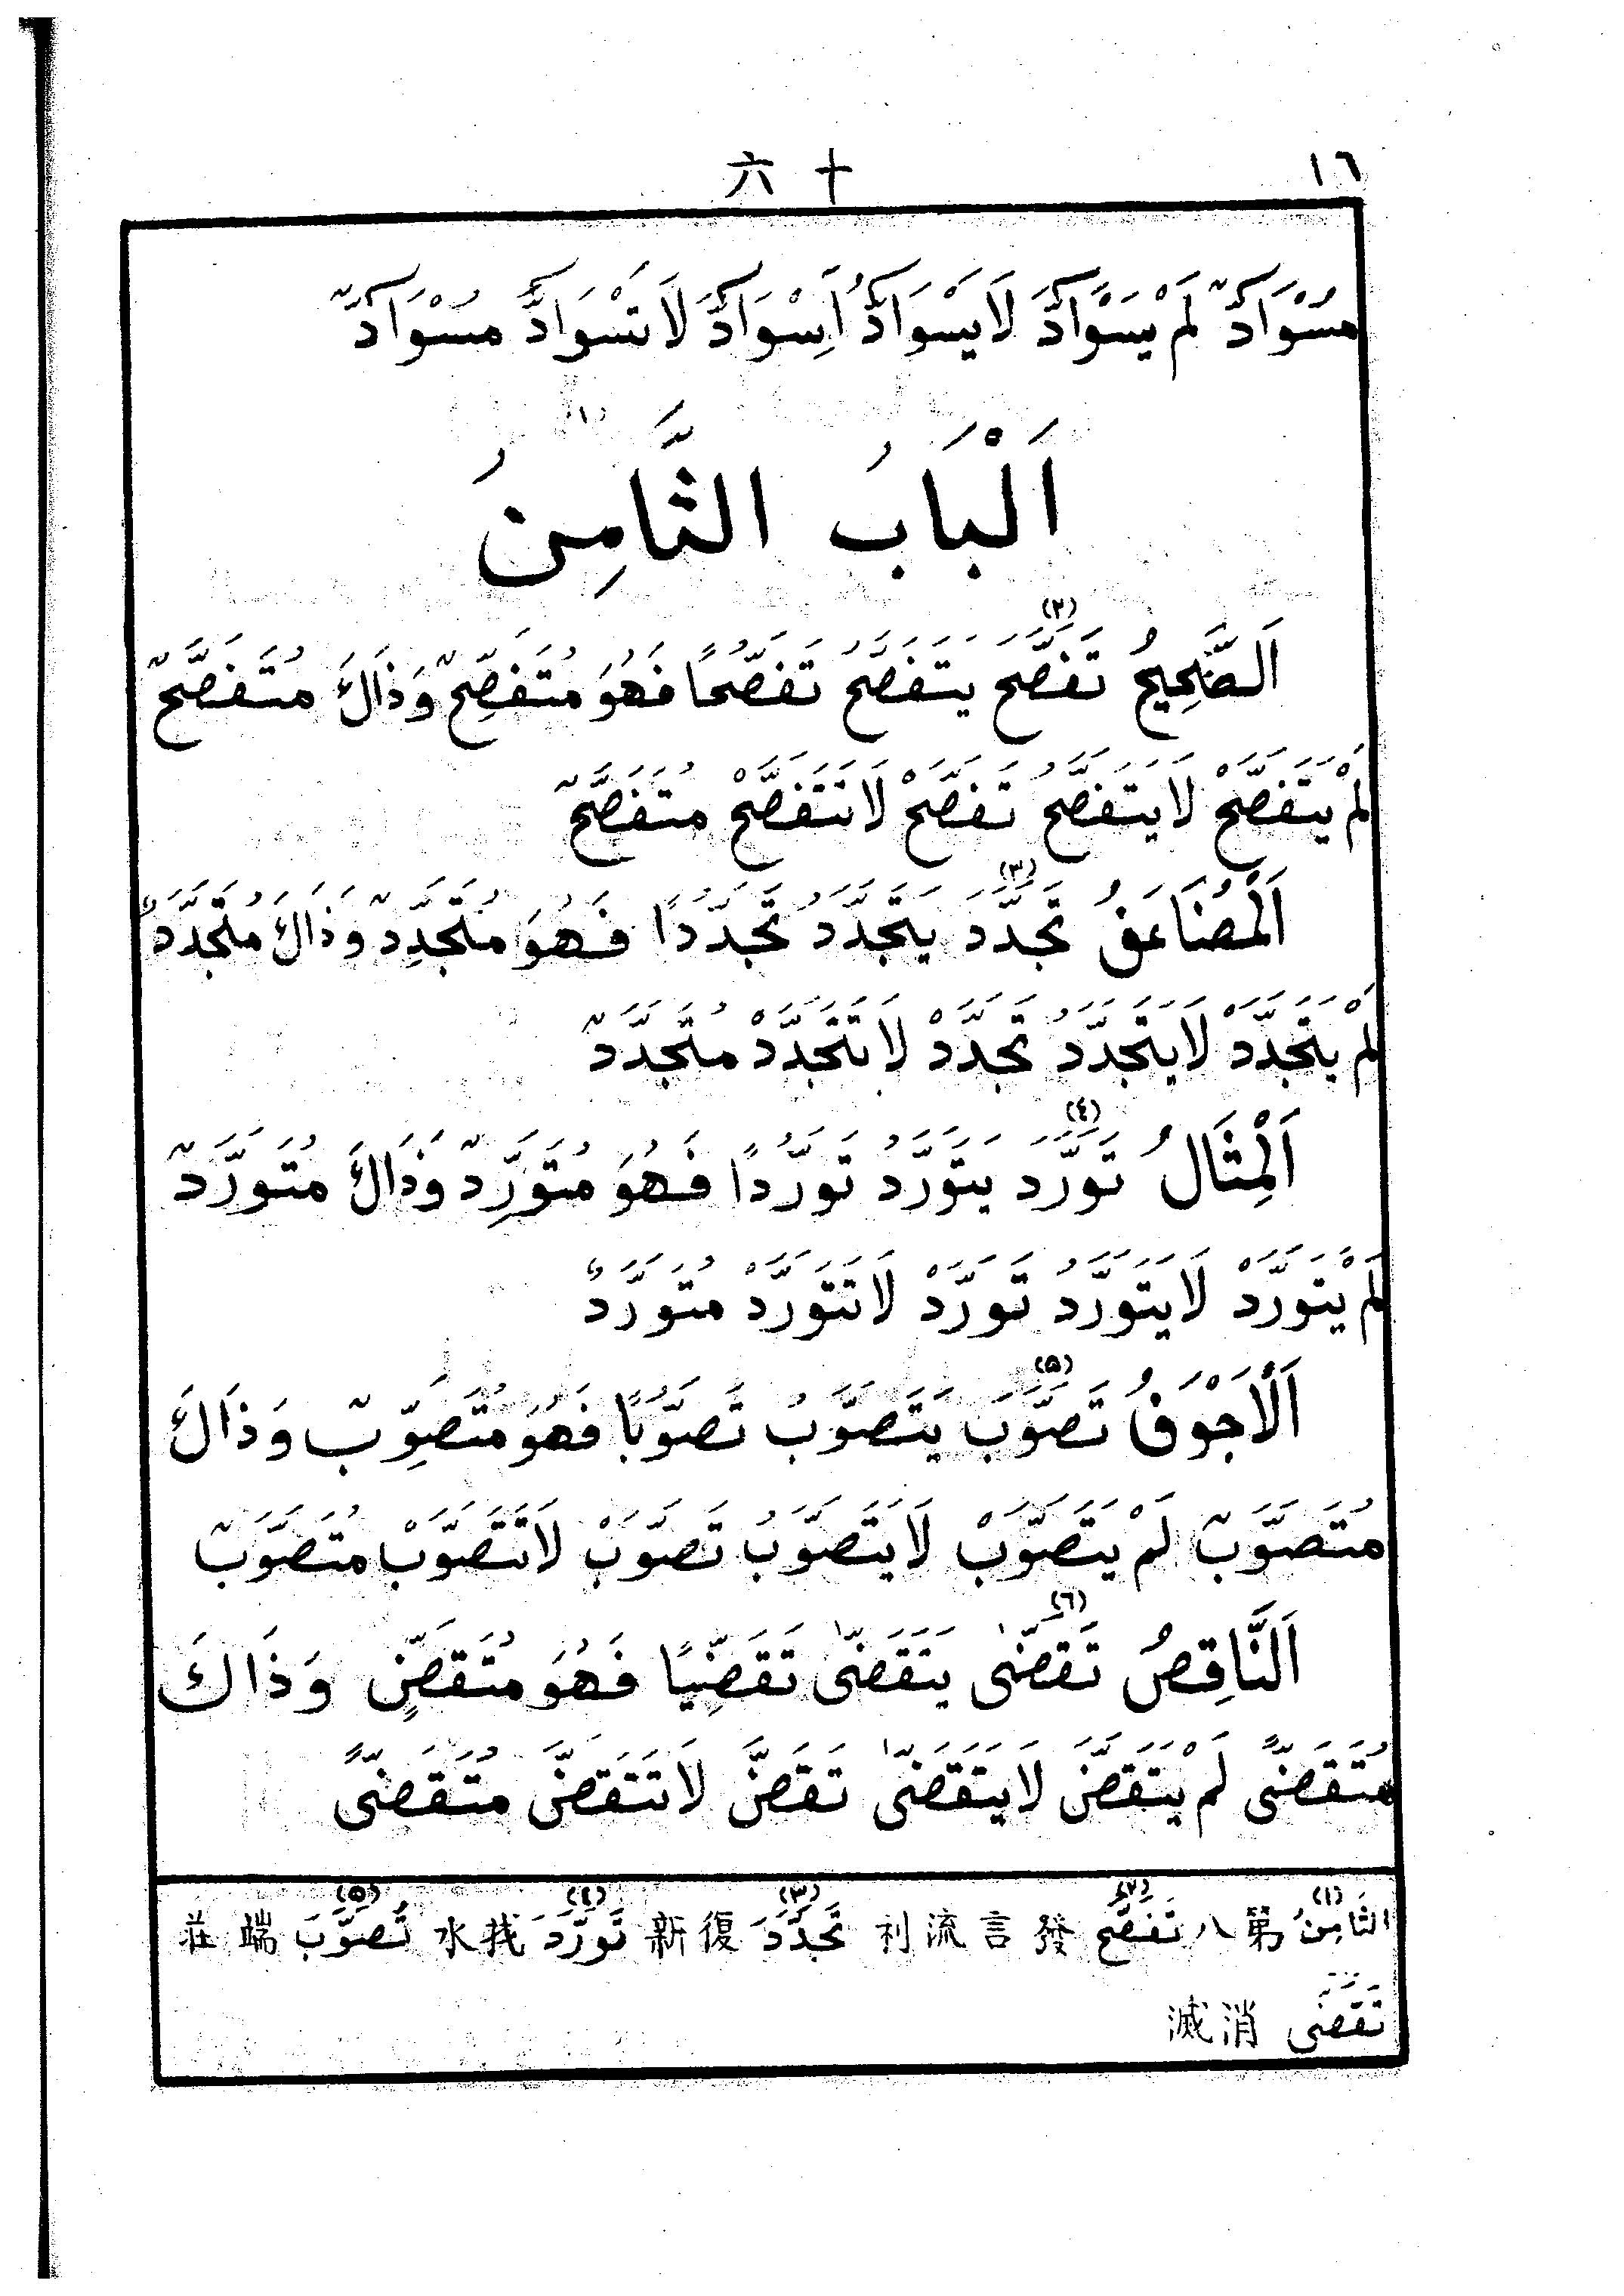 ١٦ 十六
مُسْوَادٌّ لَمْ يَسْوَادَّ لَا يَسْوَادُّ اِسْوَادَّ لَا تَسْوَادَّ مُسْوَادٌّ
اَلْبَابُ الثَّامِنُ (١)
اَلصَّحِيحُ تَفَصَّحَ (٢) يَتَفَصَّحُ تَفَصُّحًا فَهُوَ مُتَفَصِّحٌ وَذَاكَ مُتَفَصَّحٌ
لَمْ يَتَفَصَّحْ لَا يَتَفَصَّحُ تَفَصَّحْ لَا تَتَفَصَّحْ مُتَفَصَّحٌ
اَلْمُضَاعَفُ تَجَدَّدَ (٣) يَتَجَدَّدُ تَجَدُّدًا فَهُوَ مُتَجَدِّدٌ وَذَاكَ مُتَجَدَّدٌ
لَمْ يَتَجَدَّدْ لَا يَتَجَدَّدُ تَجَدَّدْ لَا تَتَجَدَّدْ مُتَجَدَّدٌ
اَلْمِثَالُ تَوَرَّدَ (٤) يَتَوَرَّدُ تَوَرُّدًا فَهُوَ مُتَوَرِّدٌ وَذَاكَ مُتَوَرَّدٌ
لَمْ يَتَوَرَّدْ لَا يَتَوَرَّدُ تَوَرَّدْ لَا تَتَوَرَّدْ مُتَوَرَّدٌ
اَلْاَجْوَفُ تَصَوَّبَ (٥) يَتَصَوَّبُ تَصَوُّبًا فَهُوَ مُتَصَوِّبٌ وَذَاكَ
مُتَصَوَّبٌ لَمْ يَتَصَوَّبْ لَا يَتَصَوَّبُ تَصَوَّبْ لَا تَتَصَوَّبْ مُتَصَوَّبٌ
اَلنَّاقِصُ تَقَضّٰى (٦) يَتَقَضّٰى تَقَضِّيًا فَهُوَ مُتَقَضٍّ وَذَاكَ
مُتَقَضًّى لَمْ يَتَقَضَّ لَا يَتَقَضّٰى تَقَضَّ لَا تَتَقَضَّ مُتَقَضًّى
(١) الثَّامِنُ 第八 (٢) تَفَصَّحَ 發言流利 (٣) تَجَدَّدَ 復新 (٤) تَوَرَّدَ 找水 (٥) تَصَوَّبَ 端莊
تَقَضَّى 消滅